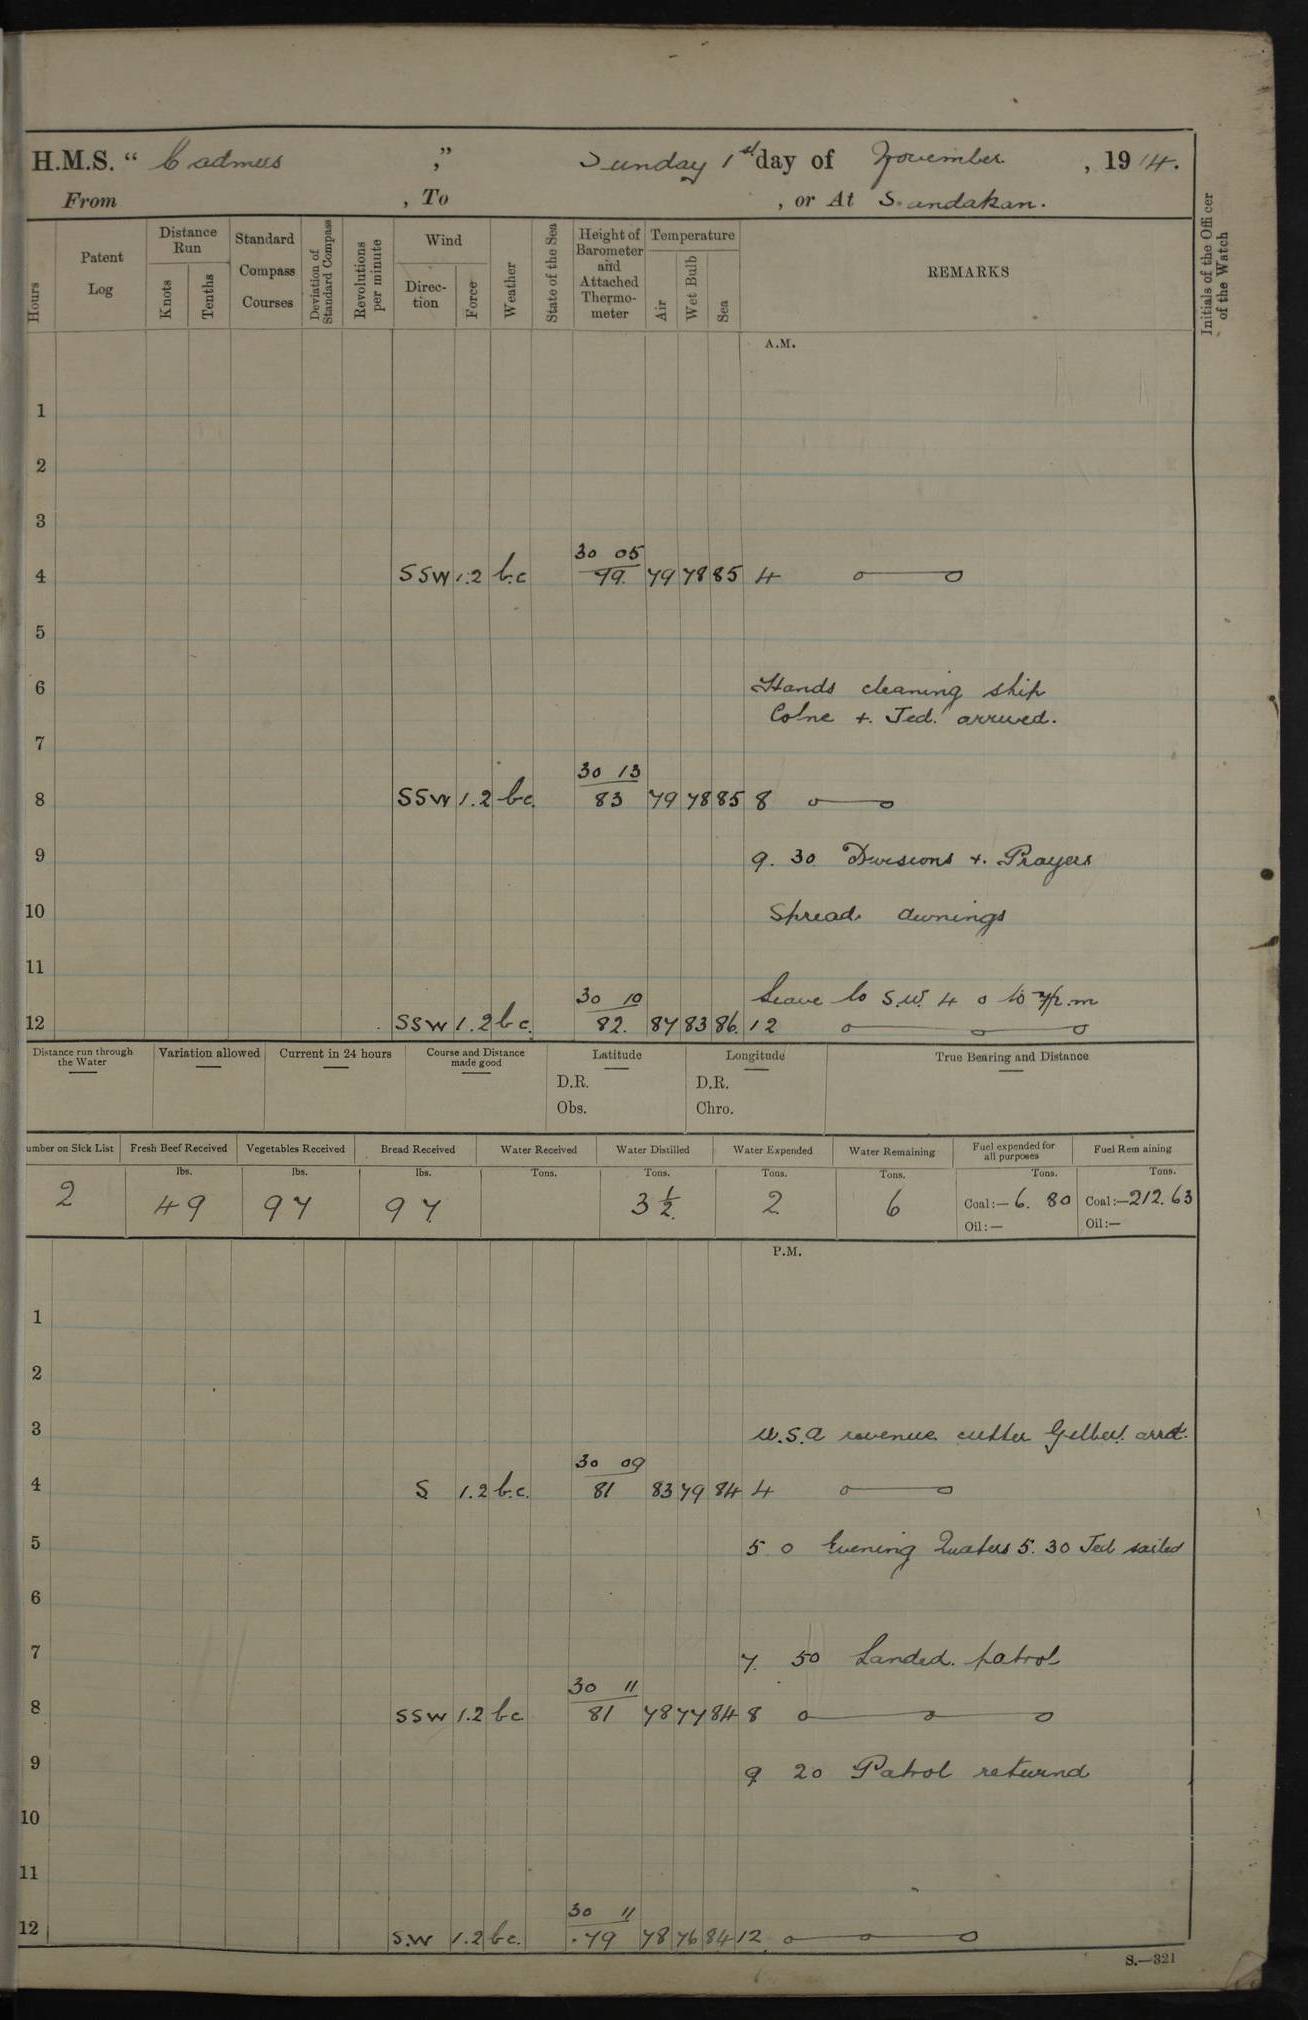 H.M.S. " Cadmus ," Sunday 1st day of November , 1914.
From , To , or At Sandakan.
Hours Patent Log Distance Run Knots Tenths Standard Compass Courses Deviation of Standard Compass Revolutions per minute Wind Direc-tion Force Weather State of the Sea Height of Barometer and Attached Thermo-meter Temperature Air Wet Bulb Sea REMARKS Initials of the Officer of the Watch
A.M.
1
2
3
30 05
4 SSW 1.2 b.c 79. 79 78 85 4
5
6 Hands cleaning ship
Colne + Jed. arrived.
7
30 13
8 SSW 1.2 b.c. 83 79 78 85 8
9 9. 30 Divisions + Prayers
10 Spread awnings
11
30 10 Leave to S.W. 4 0 to 7 p.m
12 SSW 1.2 b c. 82. 87 83 86. 12
Distance run through the Water Variation allowed Current in 24 hours Course and Distance made good Latitude Longitude True Bearing and Distance
D.R. D.R.
Obs. Chro.
umber on Sick List Fresh Beef Received Vegetables Received Bread Received Water Received Water Distilled Water Expended Water Remaining Fuel expended for all purposes Fuel Remaining
lbs. lbs. lbs. Tons. Tons. Tons. Tons. Tons. Tons.
2 49 97 97 3 1/2 2 6 Coal:—6. 80 Coal:—212.63
Oil:— Oil:—
P.M.
1
2
3 U.S.A revenue cutter arrd.
30 09
4 S 1.2 b.c. 81 83 79 84 4
5 5 0 Evening Quaters 5. 30 Jed sailed
6
7 7. 50 Landed. patrol
30 11
8 SSW 1.2 bc 81 78 77 84 8
9 9 20 Patrol returnd
10
11
30 11
12 S.W 1.2 b c. .79 78 76 84 12
S.—321